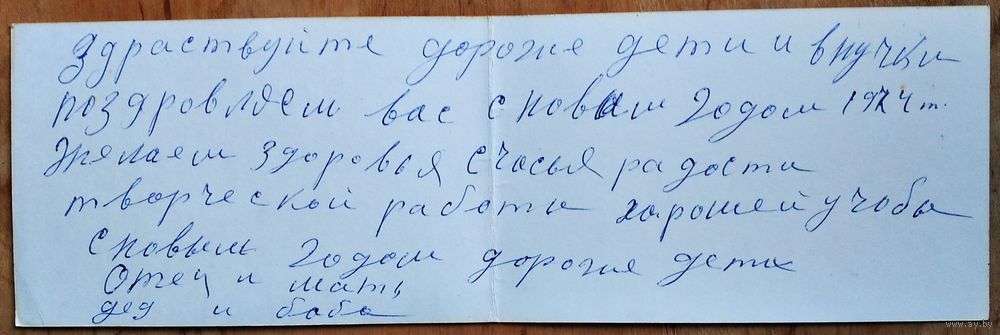 Здраствуйте дорогие дети и внучки
поздровляем вас с новым годом 1974 т.
Желаем здоровья счасья радости
творческой работы харошей учобы
с новым годом дорогие дети
Отец и мать
дед и баба
www.ay.by